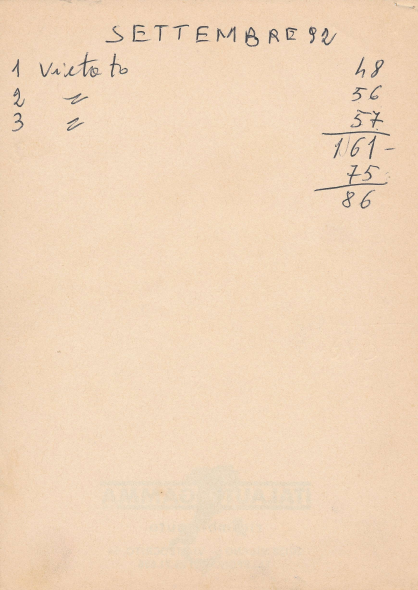 SETTEMBRE 92
1 Vietato 48
2 〃 56
3 〃 57
161-
75
86